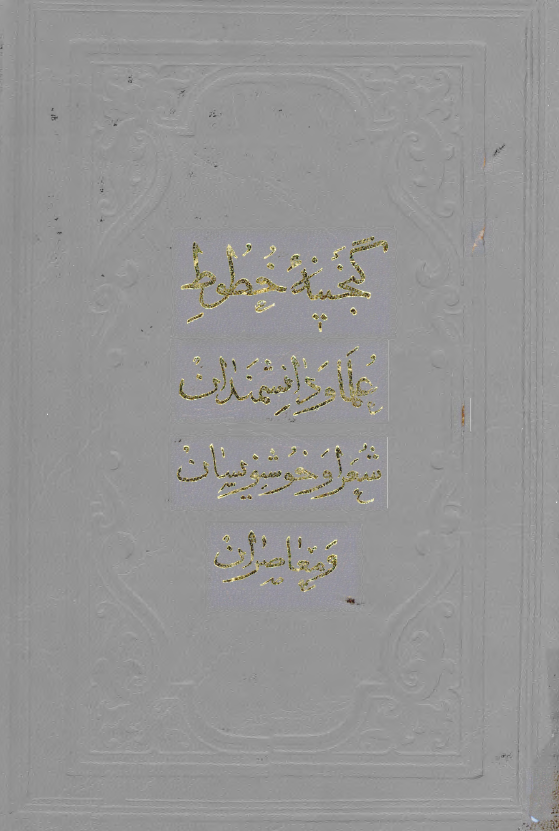 گنجینهٔ خُطُوطِ
عُلَمَاء وَ دٰانِشمَندٰانْ
شُعَرٰا وَ خُوشنِویسٰانْ
وَ مُعٰاصِرٰانْ